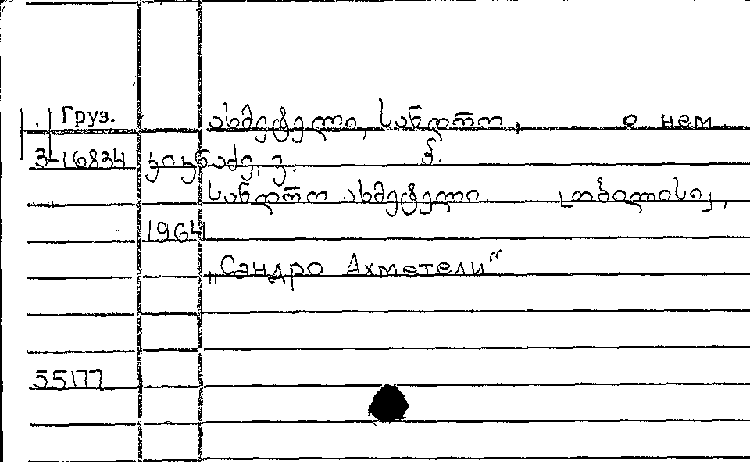 Груз. ახმეტელი, სანდრო, о нем.
3-16834 კიკნაძე, ვ.
სანდრო ახმეტელი. [თბილისი],
1964
„Сандро Ахметели"
55177